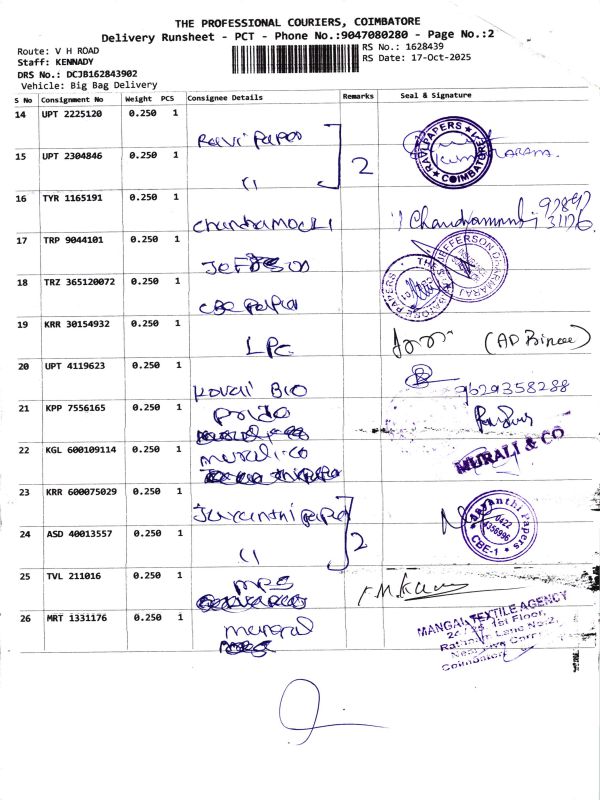 THE PROFESSIONAL COURIERS, COIMBATORE
Delivery Runsheet - PCT - Phone No.:9047080280 - Page No.:2
Route: V H ROAD
RS No.: 1628439
Staff: KENNADY
RS Date: 17-Oct-2025
DRS No.: DCJB162843902
Vehicle: Big Bag Delivery
S No Consignment No Weight PCS Consignee Details Remarks Seal & Signature
14 UPT 2225120 0.250 1
Ravi Papers
RAVI PAPERS
COIMBATORE
15 UPT 2304846 0.250 1
(1
2
16 TYR 1165191 0.250 1
Chandramouli
17 TRP 9044101 0.250 1
Jefferson
JEFFERSON DHARMARAJ
18 TRZ 365120072 0.250 1
CBE Paper
19 KRR 30154932 0.250 1
LPC
20 UPT 4119623 0.250 1
Kovai BIO
9629358288
21 KPP 7556165 0.250 1
22 KGL 600109114 0.250 1
murali-co
MURALI & CO
23 KRR 600075029 0.250 1
Jayanthi Paper
Jayanthi Papers
0422
4356996
CBE-1
24 ASD 40013557 0.250 1
(1
2
25 TVL 211016 0.250 1
mps
26 MRT 1331176 0.250 1
mangal
MANGAL TEXTILE AGENCY
1st Floor,
Lane No:2,
Coimbatore